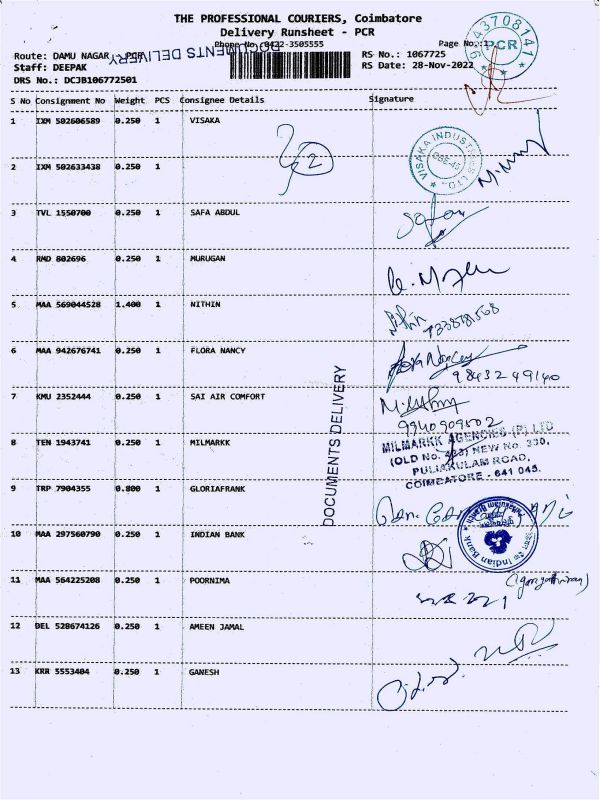 THE PROFESSIONAL COURIERS, Coimbatore
Delivery Runsheet - PCR
Phone No :0422-3505555
Page No.:1
Route: DAMU NAGAR - PCR
RS No.: 1067725
Staff: DEEPAK
RS Date: 28-Nov-2022
DRS No.: DCJB106772501
DOCUMENTS DELIVERY
9843708141
PCR
S No Consignment No Weight PCS Consignee Details Signature
1 IXM 502606589 0.250 1 VISAKA
2
VISAKA INDUSTRIES LTD.
2 IXM 502633438 0.250 1
3 TVL 1550700 0.250 1 SAFA ABDUL
4 RMD 802696 0.250 1 MURUGAN
5 MAA 569044528 1.400 1 NITHIN
7338781568
6 MAA 942676741 0.250 1 FLORA NANCY
Flora Nancy
9843249140
7 KMU 2352444 0.250 1 SAI AIR COMFORT
9940909502
DOCUMENTS DELIVERY
8 TEN 1943741 0.250 1 MILMARKK
MILMARKK AGENCIES (P) LTD
(OLD No. 423) NEW No. 330,
PULIAKULAM ROAD,
COIMBATORE - 641 045.
9 TRP 7904355 0.800 1 GLORIAFRANK
10 MAA 297560790 0.250 1 INDIAN BANK
Indian Bank
11 MAA 564225208 0.250 1 POORNIMA
12 DEL 528674126 0.250 1 AMEEN JAMAL
13 KRR 5553404 0.250 1 GANESH